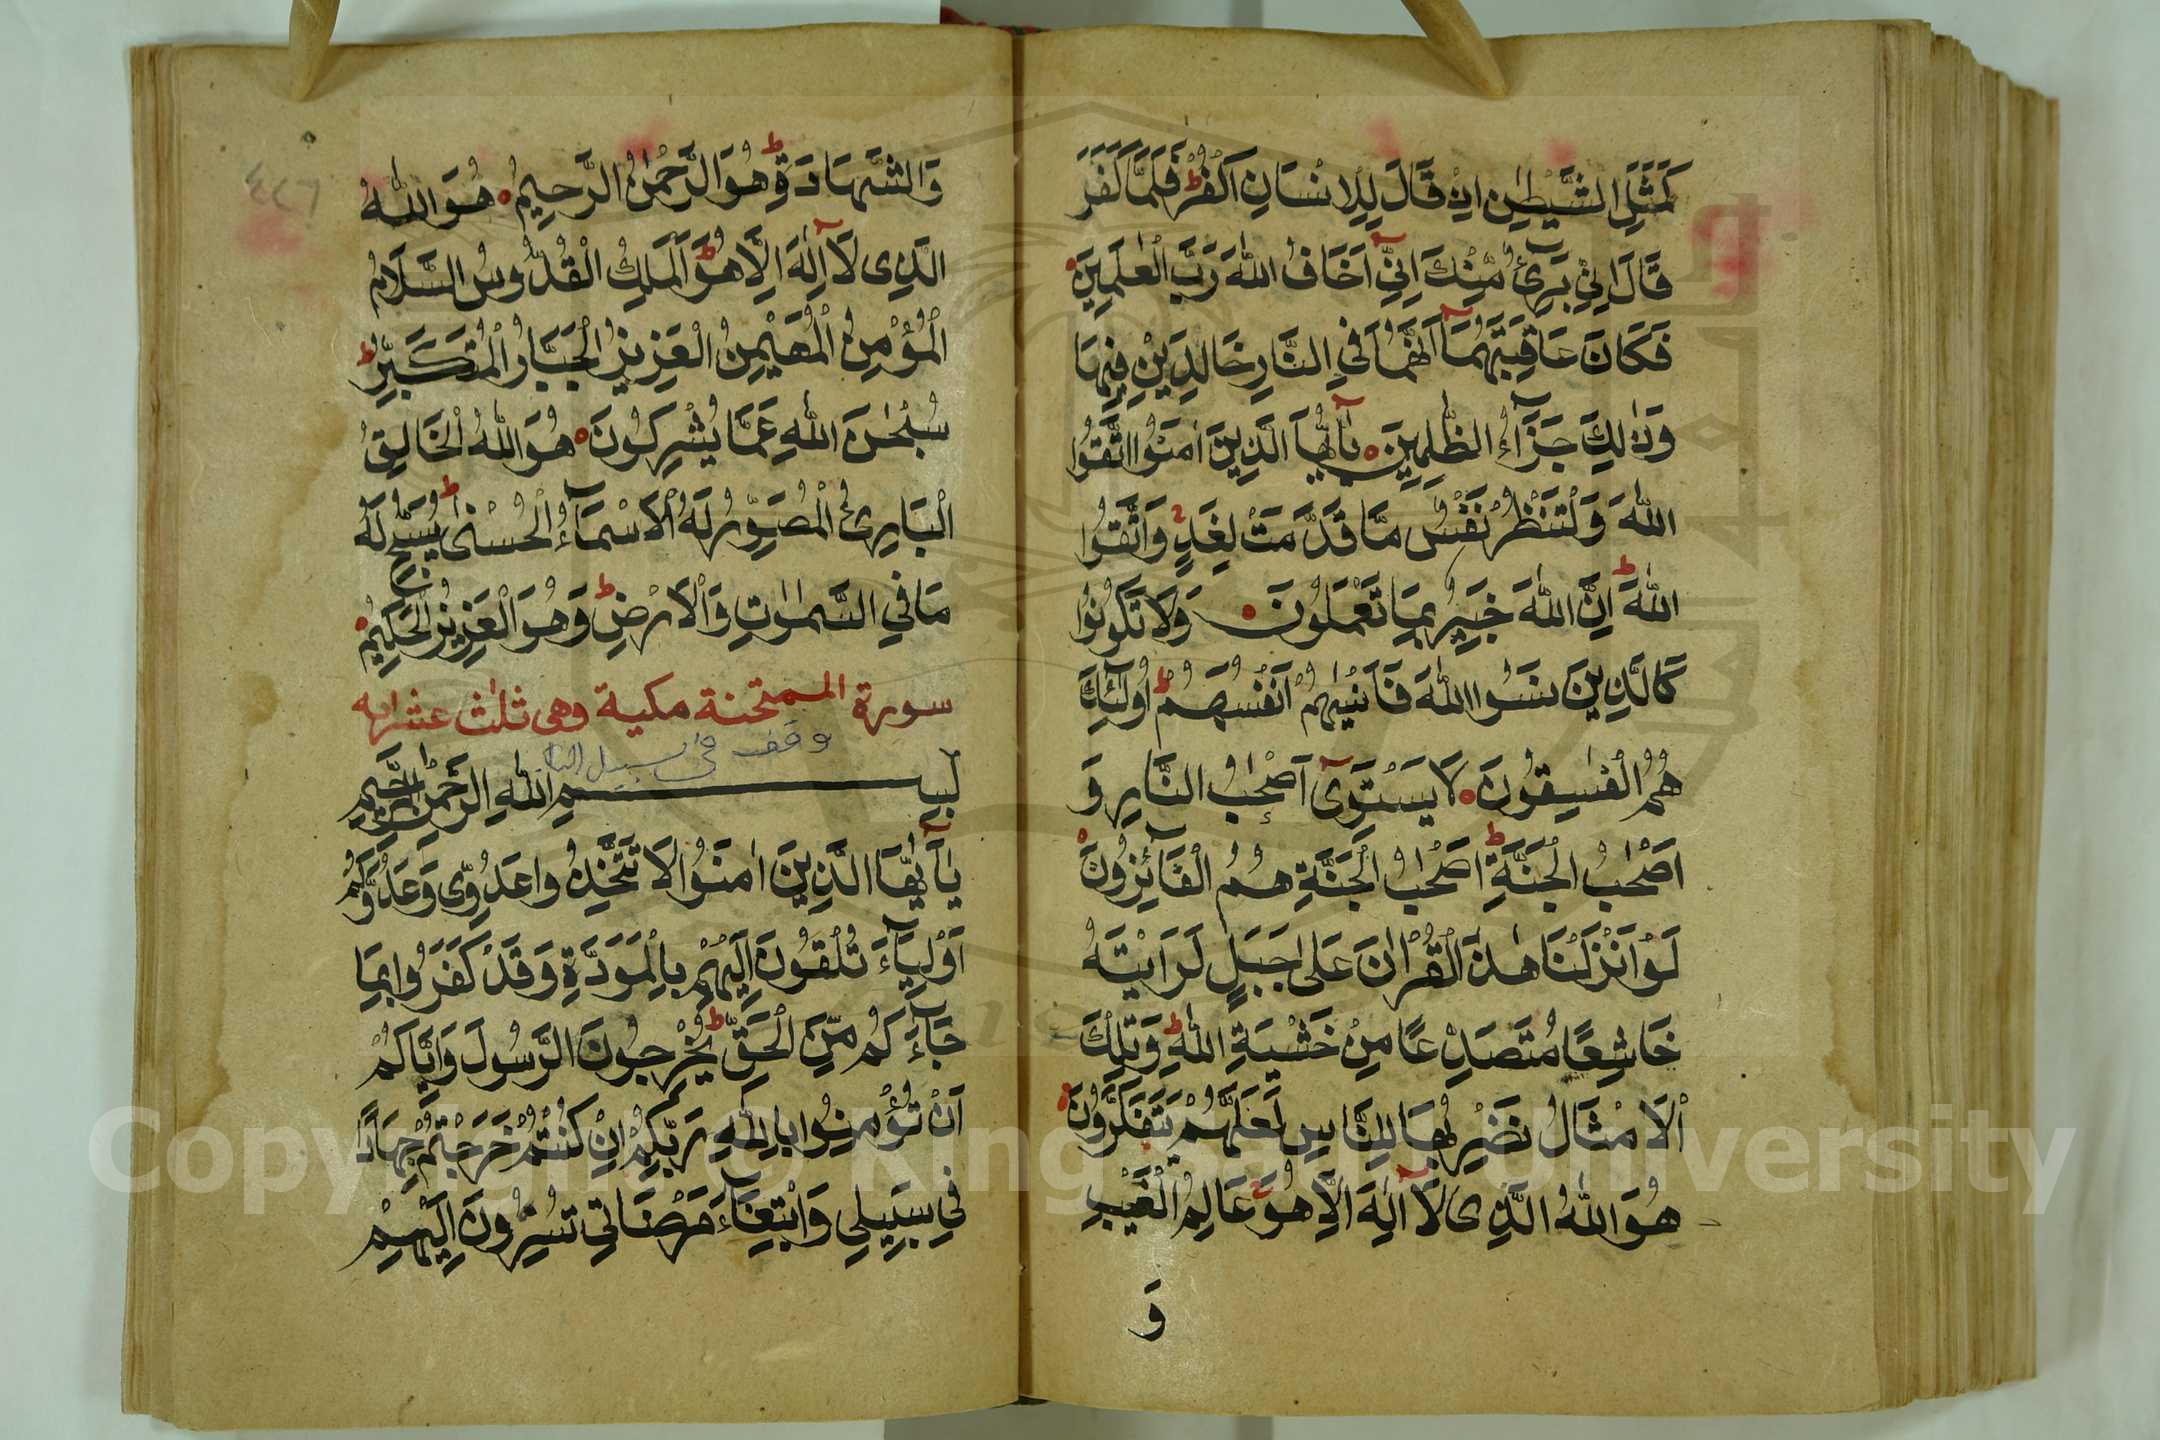 كَمَثَلِ الشَّيْطٰنِ اِذْ قَالَ لِلْاِنْسَانِ اكْفُرْ ط فَلَمَّا كَفَرَ
قَالَ اِنِّيْ بَرِيْٓءٌ مِّنْكَ اِنِّيْٓ اَخَافُ اللّٰهَ رَبَّ الْعٰلَمِيْنَ
فَكَانَ عَاقِبَتَهُمَآ اَنَّهُمَا فِي النَّارِ خَالِدَيْنِ فِيْهَا
وَذٰلِكَ جَزٰٓؤُا الظّٰلِمِيْنَ ه يٰٓاَيُّهَا الَّذِيْنَ اٰمَنُوا اتَّقُوا
اللّٰهَ وَلْتَنْظُرْ نَفْسٌ مَّا قَدَّمَتْ لِغَدٍ وَاتَّقُوا
اللّٰهَ ط اِنَّ اللّٰهَ خَبِيْرٌ بِمَا تَعْمَلُوْنَ ه وَلَا تَكُوْنُوْا
كَالَّذِيْنَ نَسُوا اللّٰهَ فَاَنْسٰىهُمْ اَنْفُسَهُمْ ط اُولٰٓئِكَ
هُمُ الْفٰسِقُوْنَ ه لَا يَسْتَوِيْٓ اَصْحٰبُ النَّارِ وَ
اَصْحٰبُ الْجَنَّةِ ط اَصْحٰبُ الْجَنَّةِ هُمُ الْفَآئِزُوْنَ ه
لَوْ اَنْزَلْنَا هٰذَا الْقُرْاٰنَ عَلٰى جَبَلٍ لَرَاَيْتَهٗ
خَاشِعًا مُتَصَدِّعًا مِنْ خَشْيَةِ اللّٰهِ ط وَتِلْكَ
الْاَمْثَالُ نَضْرِبُهَا لِلنَّاسِ لَعَلَّهُمْ يَتَفَكَّرُوْنَ ه
هُوَ اللّٰهُ الَّذِيْ لَآ اِلٰهَ اِلَّا هُوَ عَالِمُ الْغَيْبِ
وَ
٤٢٦
وَالشَّهَادَةِ ط هُوَ الرَّحْمٰنُ الرَّحِيْمُ ه هُوَ اللّٰهُ
الَّذِيْ لَآ اِلٰهَ اِلَّا هُوَ اَلْمَلِكُ الْقُدُّوْسُ السَّلَامُ
الْمُؤْمِنُ الْمُهَيْمِنُ الْعَزِيْزُ الْجَبَّارُ الْمُتَكَبِّرُ ط
سُبْحٰنَ اللّٰهِ عَمَّا يُشْرِكُوْنَ ه هُوَ اللّٰهُ الْخَالِقُ
الْبَارِئُ الْمُصَوِّرُ لَهُ الْاَسْمَآءُ الْحُسْنٰى ط يُسَبِّحُ لَهٗ
مَا فِي السَّمٰوٰتِ وَالْاَرْضِ ط وَهُوَ الْعَزِيْزُ الْحَكِيْمُ ه
سورة الممتحنة مكية وهى ثلٰث عشر ايه
وقف فى سبيل الله
بِسْمِ اللّٰهِ الرَّحْمٰنِ الرَّحِيْمِ
يٰٓاَيُّهَا الَّذِيْنَ اٰمَنُوْا لَا تَتَّخِذُوْا عَدُوِّيْ وَعَدُوَّكُمْ
اَوْلِيَآءَ تُلْقُوْنَ اِلَيْهِمْ بِالْمَوَدَّةِ وَقَدْ كَفَرُوْا بِمَا
جَآءَكُمْ مِّنَ الْحَقِّ ط يُخْرِجُوْنَ الرَّسُوْلَ وَاِيَّاكُمْ
اَنْ تُؤْمِنُوْا بِاللّٰهِ رَبِّكُمْ اِنْ كُنْتُمْ خَرَجْتُمْ جِهَادًا
فِيْ سَبِيْلِيْ وَابْتِغَآءَ مَرْضَاتِيْ تُسِرُّوْنَ اِلَيْهِمْ
Copyright © King Saud University